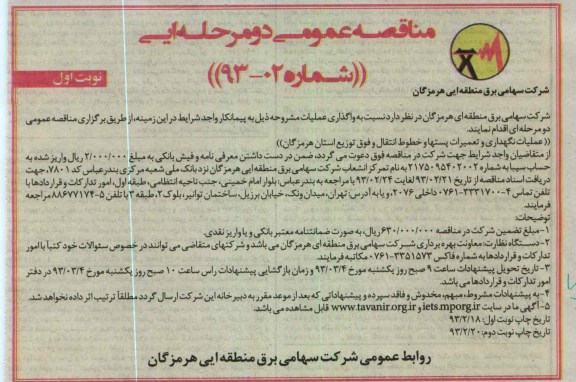 مناقصه عمومی دو مرحله ایی
((شماره ۰۲-۹۳))
نوبت اول
شرکت سهامی برق منطقه ایی هرمزگان
شرکت سهامی برق منطقه ای هرمزگان در نظر دارد نسبت به واگذاری عملیات مشروحه ذیل به پیمانکار واجد شرایط در این زمینه، از طریق برگزاری مناقصه عمومی
دو مرحله ای اقدام نمایند.
((عملیات نگهداری و تعمیرات پستها و خطوط انتقال و فوق توزیع استان هرمزگان))
از متقاضیان واجد شرایط جهت شرکت در مناقصه فوق دعوت می گردد، ضمن در دست داشتن معرفی نامه و فیش بانکی به مبلغ ۲/۰۰۰/۰۰۰ ریال واریز شده به
حساب سیبا به شماره ۲۱۷۵۰۹۵۴۰۲۰۰۲ به نام تمرکز انشعاب شرکت سهامی برق منطقه ایی هرمزگان نزد بانک ملی شعبه مرکزی بندرعباس کد ۷۸۰۱، جهت
دریافت اسناد مناقصه از تاریخ ۹۳/۰۲/۲۱ لغایت ۹۳/۰۲/۲۴ با مراجعه به بندرعباس: بلوار امام خمینی، جنب ناحیه انتظامی، طبقه اول، امور تدارکات و قراردادها با
تلفن تماس ۴-۰۷۶۱-۳۳۳۱۷۰۰ داخلی ۲۰۷۶، و یا به آدرس: تهران، میدان ونک، خیابان برزیل، ساختمان توانیر، بلوک ۲، طبقه ۳ با تلفن ۵-۸۸۶۷۷۱۷۴ مراجعه
فرمایند.
توضیحات:
۱- مبلغ تضمین شرکت در مناقصه ۶۳۰/۰۰۰/۰۰۰ ریال، به صورت ضمانتنامه معتبر بانکی و یا واریز نقدی.
۲- دستگاه نظارت: معاونت بهره برداری شرکت سهامی برق منطقه ای هرمزگان می باشد و شرکتهای متقاضی می توانند در خصوص سئوالات خود کتباً با امور
تدارکات و قراردادها به شماره فاکس ۰۷۶۱-۳۳۵۱۵۷۳ مکاتبه فرمایند.
۳- تاریخ تحویل پیشنهادات ساعت ۹ صبح روز یکشنبه مورخ ۹۳/۰۳/۴ و زمان بازگشایی پیشنهادات راس ساعت ۱۰ صبح روز یکشنبه مورخ ۹۳/۰۳/۴ در دفتر
امور تدارکات و قراردادها می باشد.
۴- به پیشنهادات مشروط، مبهم، مخدوش و فاقد سپرده و پیشنهاداتی که بعد از موعد مقرر به دبیرخانه این شرکت ارسال گردد مطلقاً ترتیب اثر داده نخواهد شد.
۵- آگهی ما در سایت iets.mporg.ir و www.tavanir.org.ir قابل مشاهده می باشد.
تاریخ چاپ نوبت اول: ۹۳/۲/۱۸
تاریخ چاپ نوبت دوم: ۹۳/۲/۲۰
روابط عمومی شرکت سهامی برق منطقه ایی هرمزگان